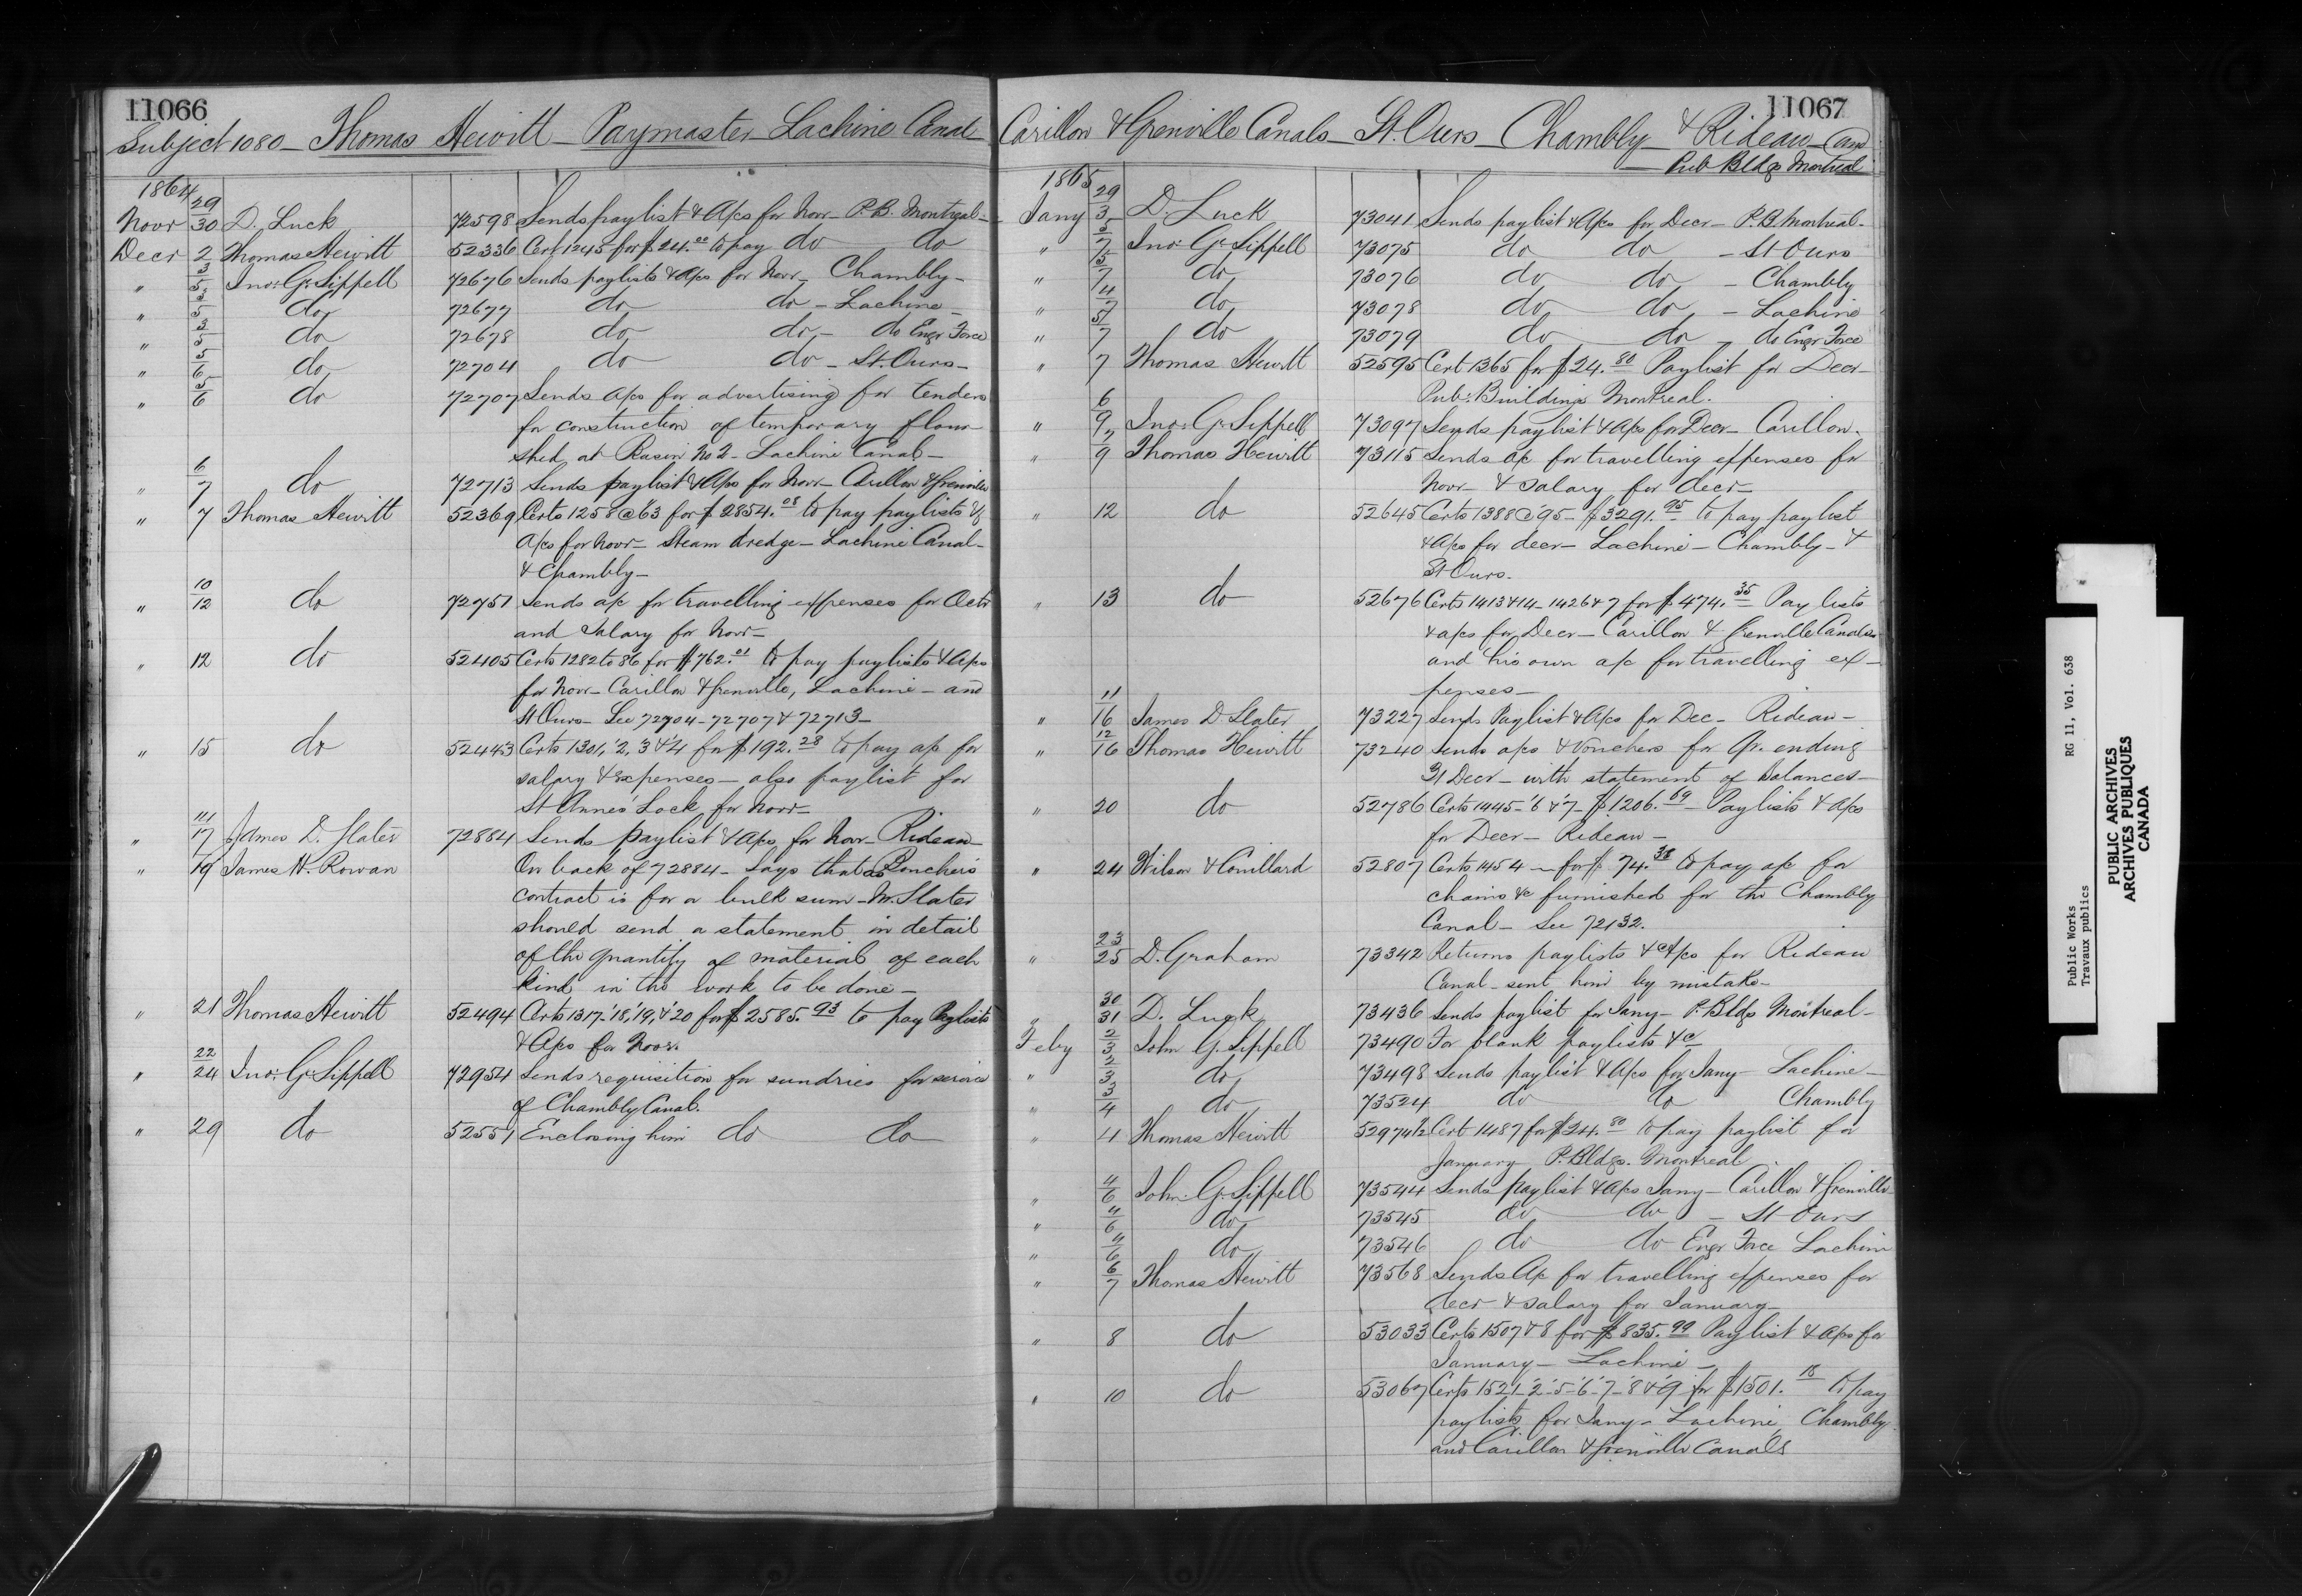 11066
Subject 1080 - Thomas Hewitt - Paymaster Lachine Canal -
1864
Novr 29/30 D. Luck 72598 Sends paylist & A/cs for Novr - P.B. Montreal -
Decr 2 Thomas Hewitt 52336 Cert 1245 for $24.00 to pay do do
" 3/5 Jno. G. Sippell 72676 Sends paylists & A/cs for Novr - Chambly -
" 3/5 do 72677 do do - Lachine -
" 3/5 do 72678 do do - do Engr Force
" 5/6 do 72704 do do - St. Ours -
" 5/6 do 72707 Sends A/cs for advertising for tenders
for construction of temporary flour
shed at Basin No 2 - Lachine Canal -
" 6/7 do 72713 Sends paylist & A/cs for Novr - Carillon & Grenville
" 7 Thomas Hewitt 52369 Certs 1258 @ 63 for $2854.08 to pay paylists &
A/cs for Novr - Steam dredge - Lachine Canal -
& Chambly -
" 10/12 do 72751 Sends a/c for travelling expenses for Octr
and Salary for Novr -
" 12 do 52405 Certs 1282 to 86 for $762.01 to pay paylists & A/cs
for Novr - Carillon & Grenville, Lachine - and
St Ours - See 72704 - 72707 & 72713 -
" 15 do 52443 Certs 1301, '2, '3 & '4 for $192.28 to pay a/c for
salary & expenses - also paylist for
St Annes' Lock for Novr -
" 17 James D. Slater 72884 Sends paylist & A/cs for Novr - Rideau -
" 19 James H. Rowan On back of 72884 - Says that as
contract is for a bulk sum - Mr. Slater
should send a statement in detail
of the quantity of material of each
kind in the work to be done -
" 21 Thomas Hewitt 52494 Certs 1317 - '18, '19, & '20 for $2585.93 to pay Paylists
& A/cs for Novr.
" 22/24 Jno. G. Sippell 72954 Sends requisition for sundries for service
of Chambly Canal.
" 29 do 52551 Enclosing him do do
11067
Carillon & Grenville Canals - St. Ours - Chambly - & Rideau - and
- Pub Bldgs Montreal
1865
Jany 29/3 D. Luck 73041 Sends paylist & A/cs for Decr - P.B. Montreal -
" 5/7 Jno. G. Sippell 73075 do do - St Ours
" 5/7 do 73076 do do - Chambly
" 4/7 do 73078 do do - Lachine
" 5/7 do 73079 do do - do Engr Force
" 7 Thomas Hewitt 52595 Cert 1365 for $24.80 Paylist for Decr -
Pub: Buildings Montreal.
" 6/9 Jno. G. Sippell 73097 Sends paylist & A/cs for Decr - Carillon.
" 7/9 Thomas Hewitt 73115 Sends a/c for travelling expenses for
Novr - & salary for decr -
" 12 do 52645 Certs 1388 @ 95 - $3291.95 to pay paylist
& A/cs for decr - Lachine - Chambly - &
St Ours.
" 13 do 52676 Certs 1413 & 14 - 1426 & 7 for $474.35 Pay lists
& a/cs for Decr - Carillon & Grenville Canals
and his own a/c for travelling ex-
penses -
" 11/16 James D. Slater 73227 Sends Paylist & A/cs for Dec - Rideau -
" 12/16 Thomas Hewitt 73240 Sends a/cs & vouchers for Qr. ending
31 Decr - with statement of balances -
" 20 do 52786 Certs 1445 - '6 & '7 - $1206.69 - Paylists & A/cs
for Decr - Rideau -
" 24 Wilson & Couillard 52807 Certs 1454 - for $74.38 to pay a/c for
chains &c furnished for the Chambly
Canal - See 72132.
" 23/25 D. Graham 73342 Returns paylists & A/cs for Rideau
Canal - sent him by mistake -
" 30/31 D. Luck 73436 Sends paylist for Jany - P. Bldgs Montreal -
Feby 2/3 John G. Sippell 73490 For blank paylists &c
" 2/3 do 73498 Sends paylist & A/cs for Jany - Lachine -
" 3/4 do 73524 do do Chambly
" 4 Thomas Hewitt 52974½ Cert 1487 for $24.80 to pay paylist for
January P. Bldgs. Montreal
" 4/6 John G. Sippell 73544 Sends paylist & A/cs Jany - Carillon & Grenville
" 4/6 do 73545 do do - St Ours
" 4/6 do 73546 do do Engr Force Lachine
" 6/7 Thomas Hewitt 73568 Sends A/c for travelling expenses for
decr & salary for January -
" 8 do 53033 Certs 1507 & 8 for $835.99 Paylist & A/cs for
January - Lachine -
" 10 do 53067 Certs 1521 - '2 - '5 - '6 - '7 - '8 & '9 for $1501.18 to pay
paylists for Jany - Lachine, Chambly
and Carillon & Grenville Canals
Public Works RG 11, Vol. 638
Travaux publics
PUBLIC ARCHIVES
ARCHIVES PUBLIQUES
CANADA